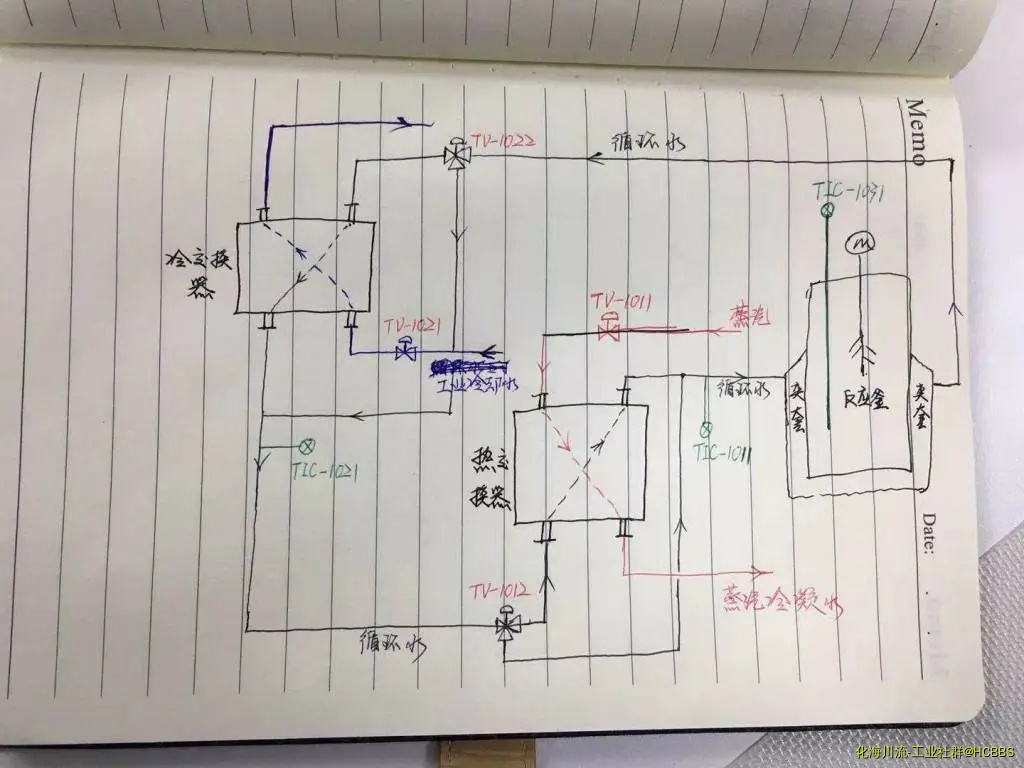 Memo
TV-1022
循环水
TIC-1031
M
冷交换
器
TV-1021
工业冷却水
TV-1011
蒸汽
循环水
夹套
反应釜
夹套
TIC-1021
热交
换器
TIC-1011
Date:
TV-1012
蒸汽冷凝水
循环水
化海川流-工业社群@HCBBS